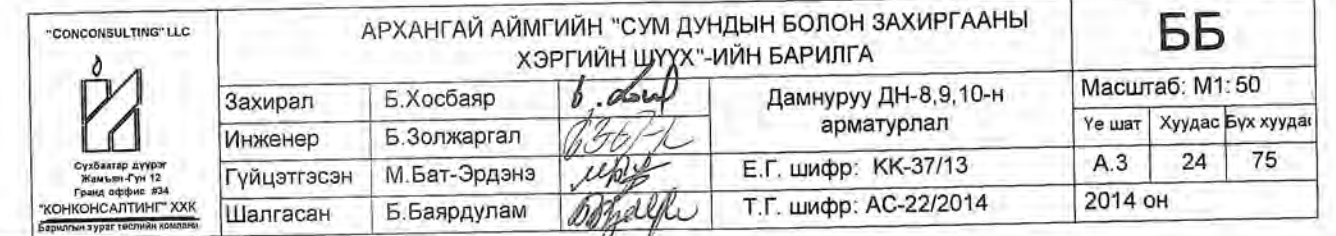 "CONCONSULTING" LLC
Сүхбаатар дүүрэг
Жамъян-Гүн 12
Гранд оффис #34
"КОНКОНСАЛТИНГ" ХХК
Барилгын зураг төслийн компани
АРХАНГАЙ АЙМГИЙН "СУМ ДУНДЫН БОЛОН ЗАХИРГААНЫ
ХЭРГИЙН ШҮҮХ"-ИЙН БАРИЛГА
ББ
Захирал Б.Хосбаяр
Инженер Б.Золжаргал
Гүйцэтгэсэн М.Бат-Эрдэнэ
Шалгасан Б.Баярдулам
Дамнуруу ДН-8,9,10-н
арматурлал
Е.Г. шифр: КК-37/13
Т.Г. шифр: АС-22/2014
Масштаб: М1:50
Үе шат Хуудас Бүх хуудас
А.3 24 75
2014 он